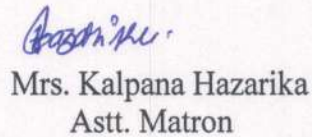 Mrs. Kalpana Hazarika
Astt. Matron